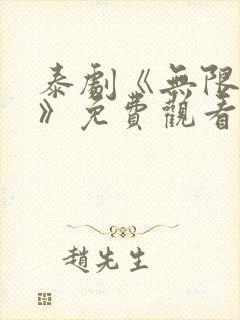 泰劇《無限
》免費觀看
趙先生